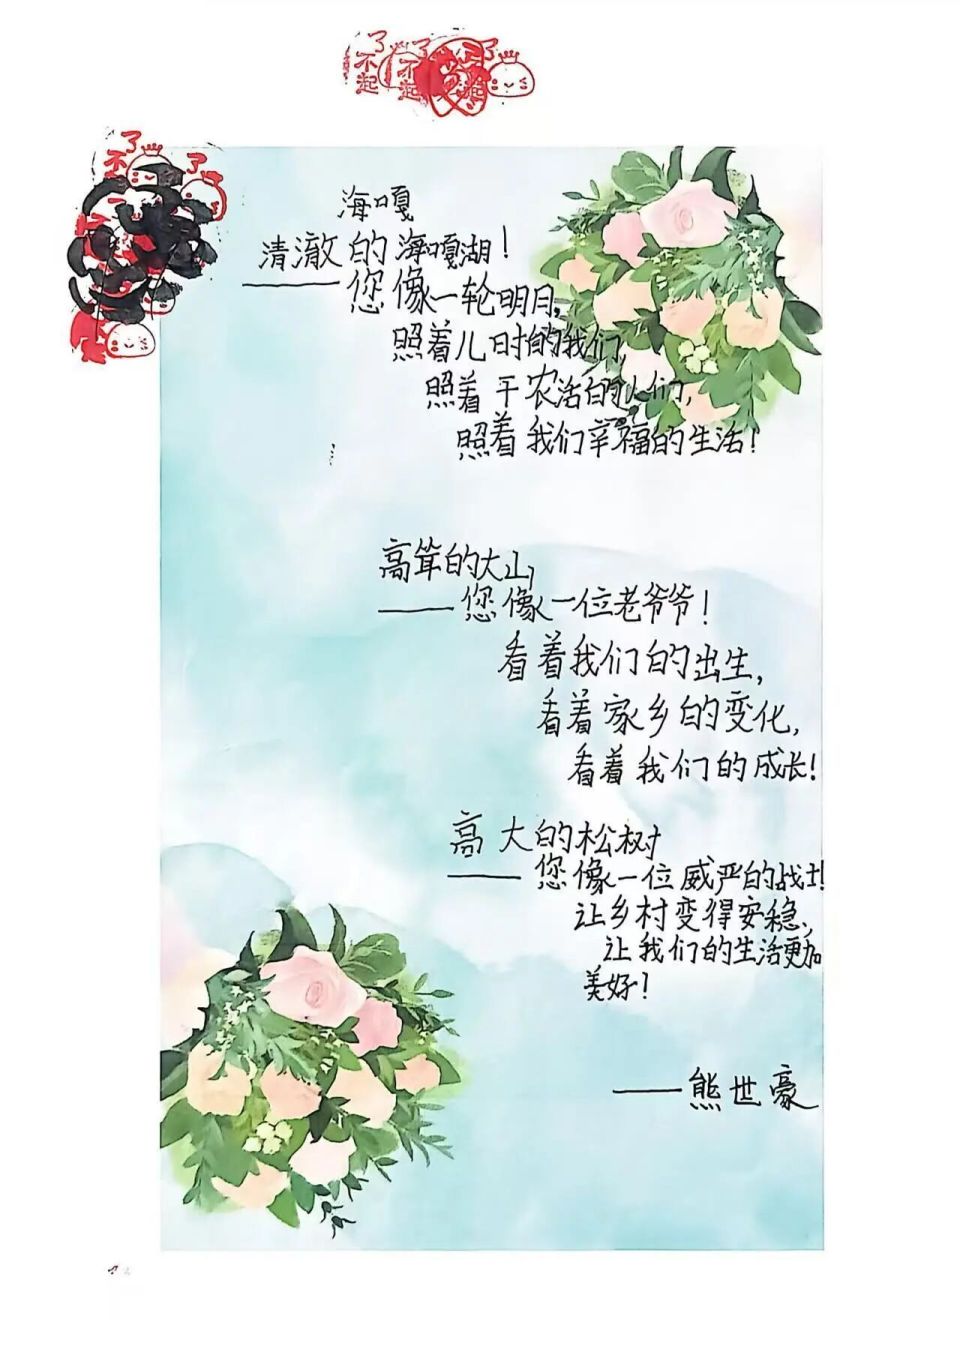 了不起
了不起
了不起
了不起
了
海嘎
清澈的海嘎湖！
——您像一轮明月，
照着儿时的我们，
照着干农活的人们，
照着我们幸福的生活！
高耸的大山，
——您像一位老爷爷！
看着我们的出生，
看着家乡的变化，
看着我们的成长！
高大的松树
——您像一位威严的战士！
让乡村变得安稳，
让我们的生活更加
美好！
——熊世豪